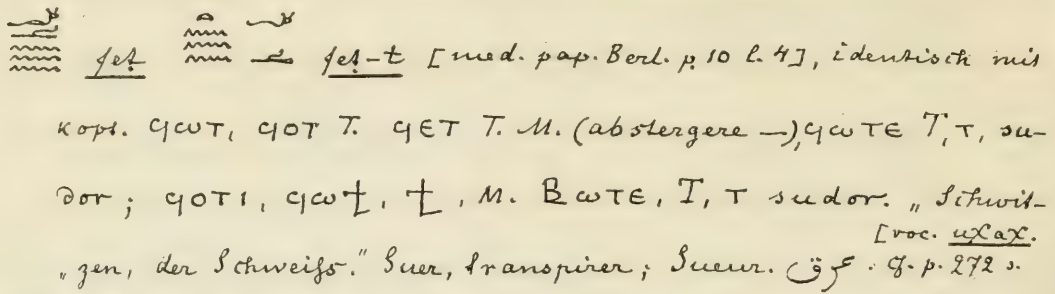 feṭ feṭ-t [med. pap. Berl. p. 10 l. 4], identisch mit
kopt. ϥωτ, ϥοτ T. ϥετ T. M. (abstergere —), ϥωτε T, τ, su-
dor; ϥοτι, ϥωϯ, ϯ, M. Βωτε, T, τ sudor. „Schwit-
[voc. uχaχ.
„zen, der Schweiſs." Suer, transpirer; Sueur. عرق. Cf. p. 272 s.